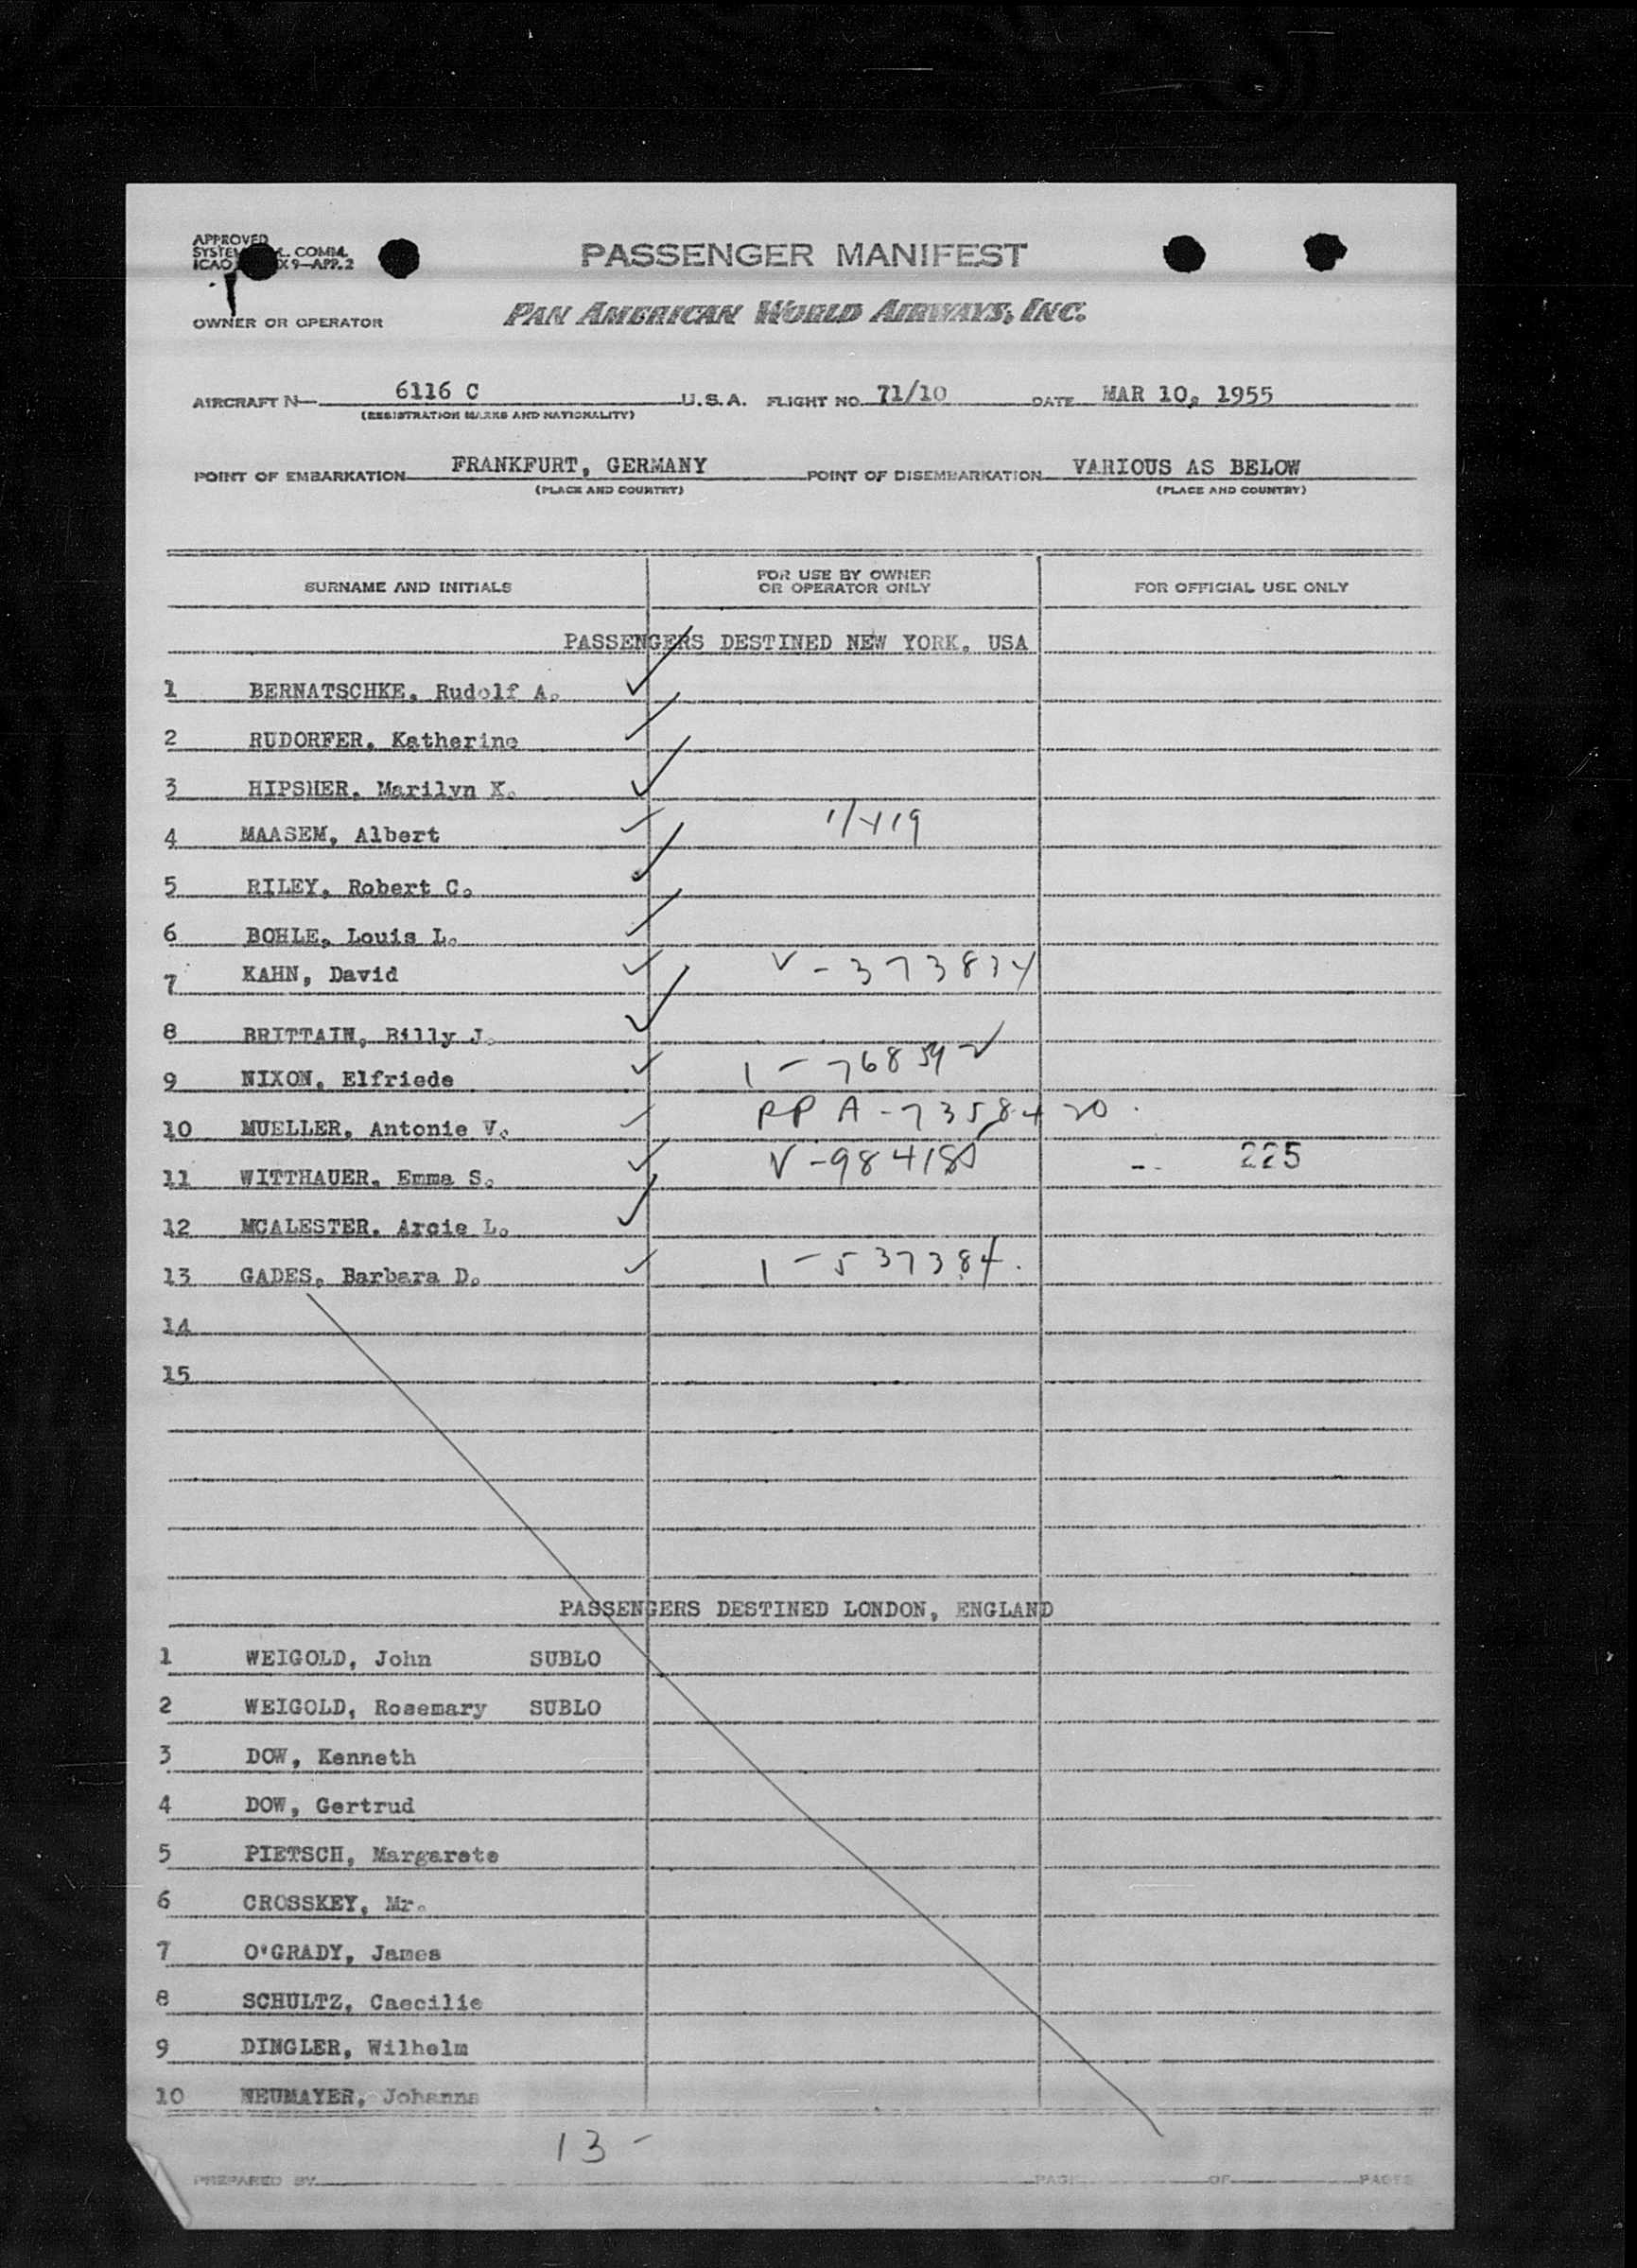 APPROVED
PASSENGER MANIFEST
OWNER OR OPERATOR PAN AMERICAN WORLD AIRWAYS, INC.
AIRCRAFT N 6116 C U.S.A. FLIGHT NO. 71/10 DATE MAR 10, 1955
(REGISTRATION MARKS AND NATIONALITY)
POINT OF EMBARKATION FRANKFURT, GERMANY POINT OF DISEMBARKATION VARIOUS AS BELOW
(PLACE AND COUNTRY) (PLACE AND COUNTRY)
SURNAME AND INITIALS FOR USE BY OWNER OR OPERATOR ONLY FOR OFFICIAL USE ONLY
PASSENGERS DESTINED NEW YORK, USA
1 BERNATSCHKE, Rudolf A.
2 RUDORFER, Katherine
3 HIPSHER, Marilyn K.
4 MAASEM, Albert
5 RILEY, Robert C.
6 BOHLE, Louis L.
7 KAHN, David
8 BRITTAIN, Billy J.
9 NIXON, Elfriede
10 MUELLER, Antonie V.
11 WITTHAUER, Emma S. 225
12 MCALESTER, Arcie L.
13 GADES, Barbara D. 1-537384.
14
15
PASSENGERS DESTINED LONDON, ENGLAND
1 WEIGOLD, John SUBLO
2 WEIGOLD, Rosemary SUBLO
3 DOW, Kenneth
4 DOW, Gertrud
5 PIETSCH, Margarete
6 CROSSKEY, Mr.
7 O'GRADY, James
8 SCHULTZ, Caecilie
9 DINGLER, Wilhelm
10 NEUMAYER, Johanna
13 -
PREPARED BY PAGE OF PAGES